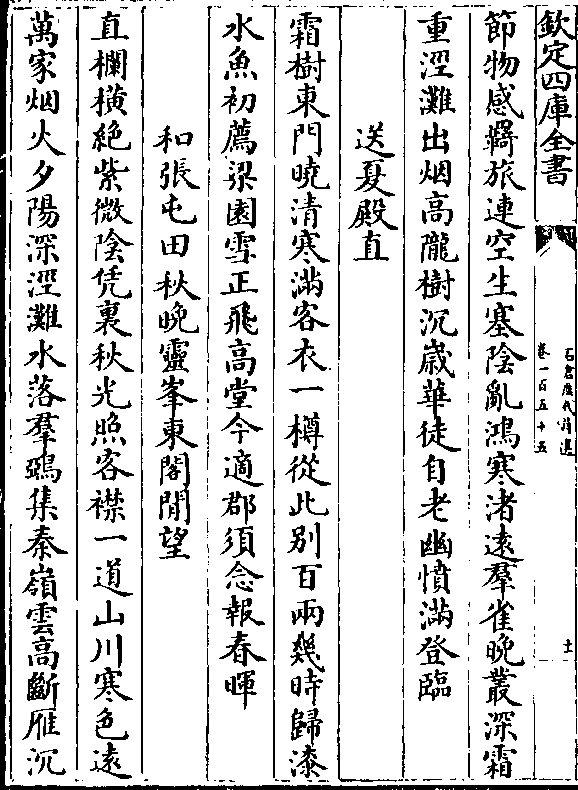 欽定四庫全書
石倉歷代詩選
卷一百五十五
十一
節物感羇旅連空生塞陰亂鴻寒渚遠羣雀晚叢深霜
重涇灘出烟高隴樹沉歲華徒自老幽憤滿登臨
送夏殿直
霜樹東門曉清寒滿客衣一樽從此别百兩幾時歸漆
水魚初薦梁園雪正飛高堂今適郡須念報春暉
和張屯田秋晚靈峯東閣閒望
直欄橫絶紫微陰凭裏秋光照客襟一道山川寒色遠
萬家烟火夕陽深涇灘水落羣鵶集秦嶺雲高斷雁沉